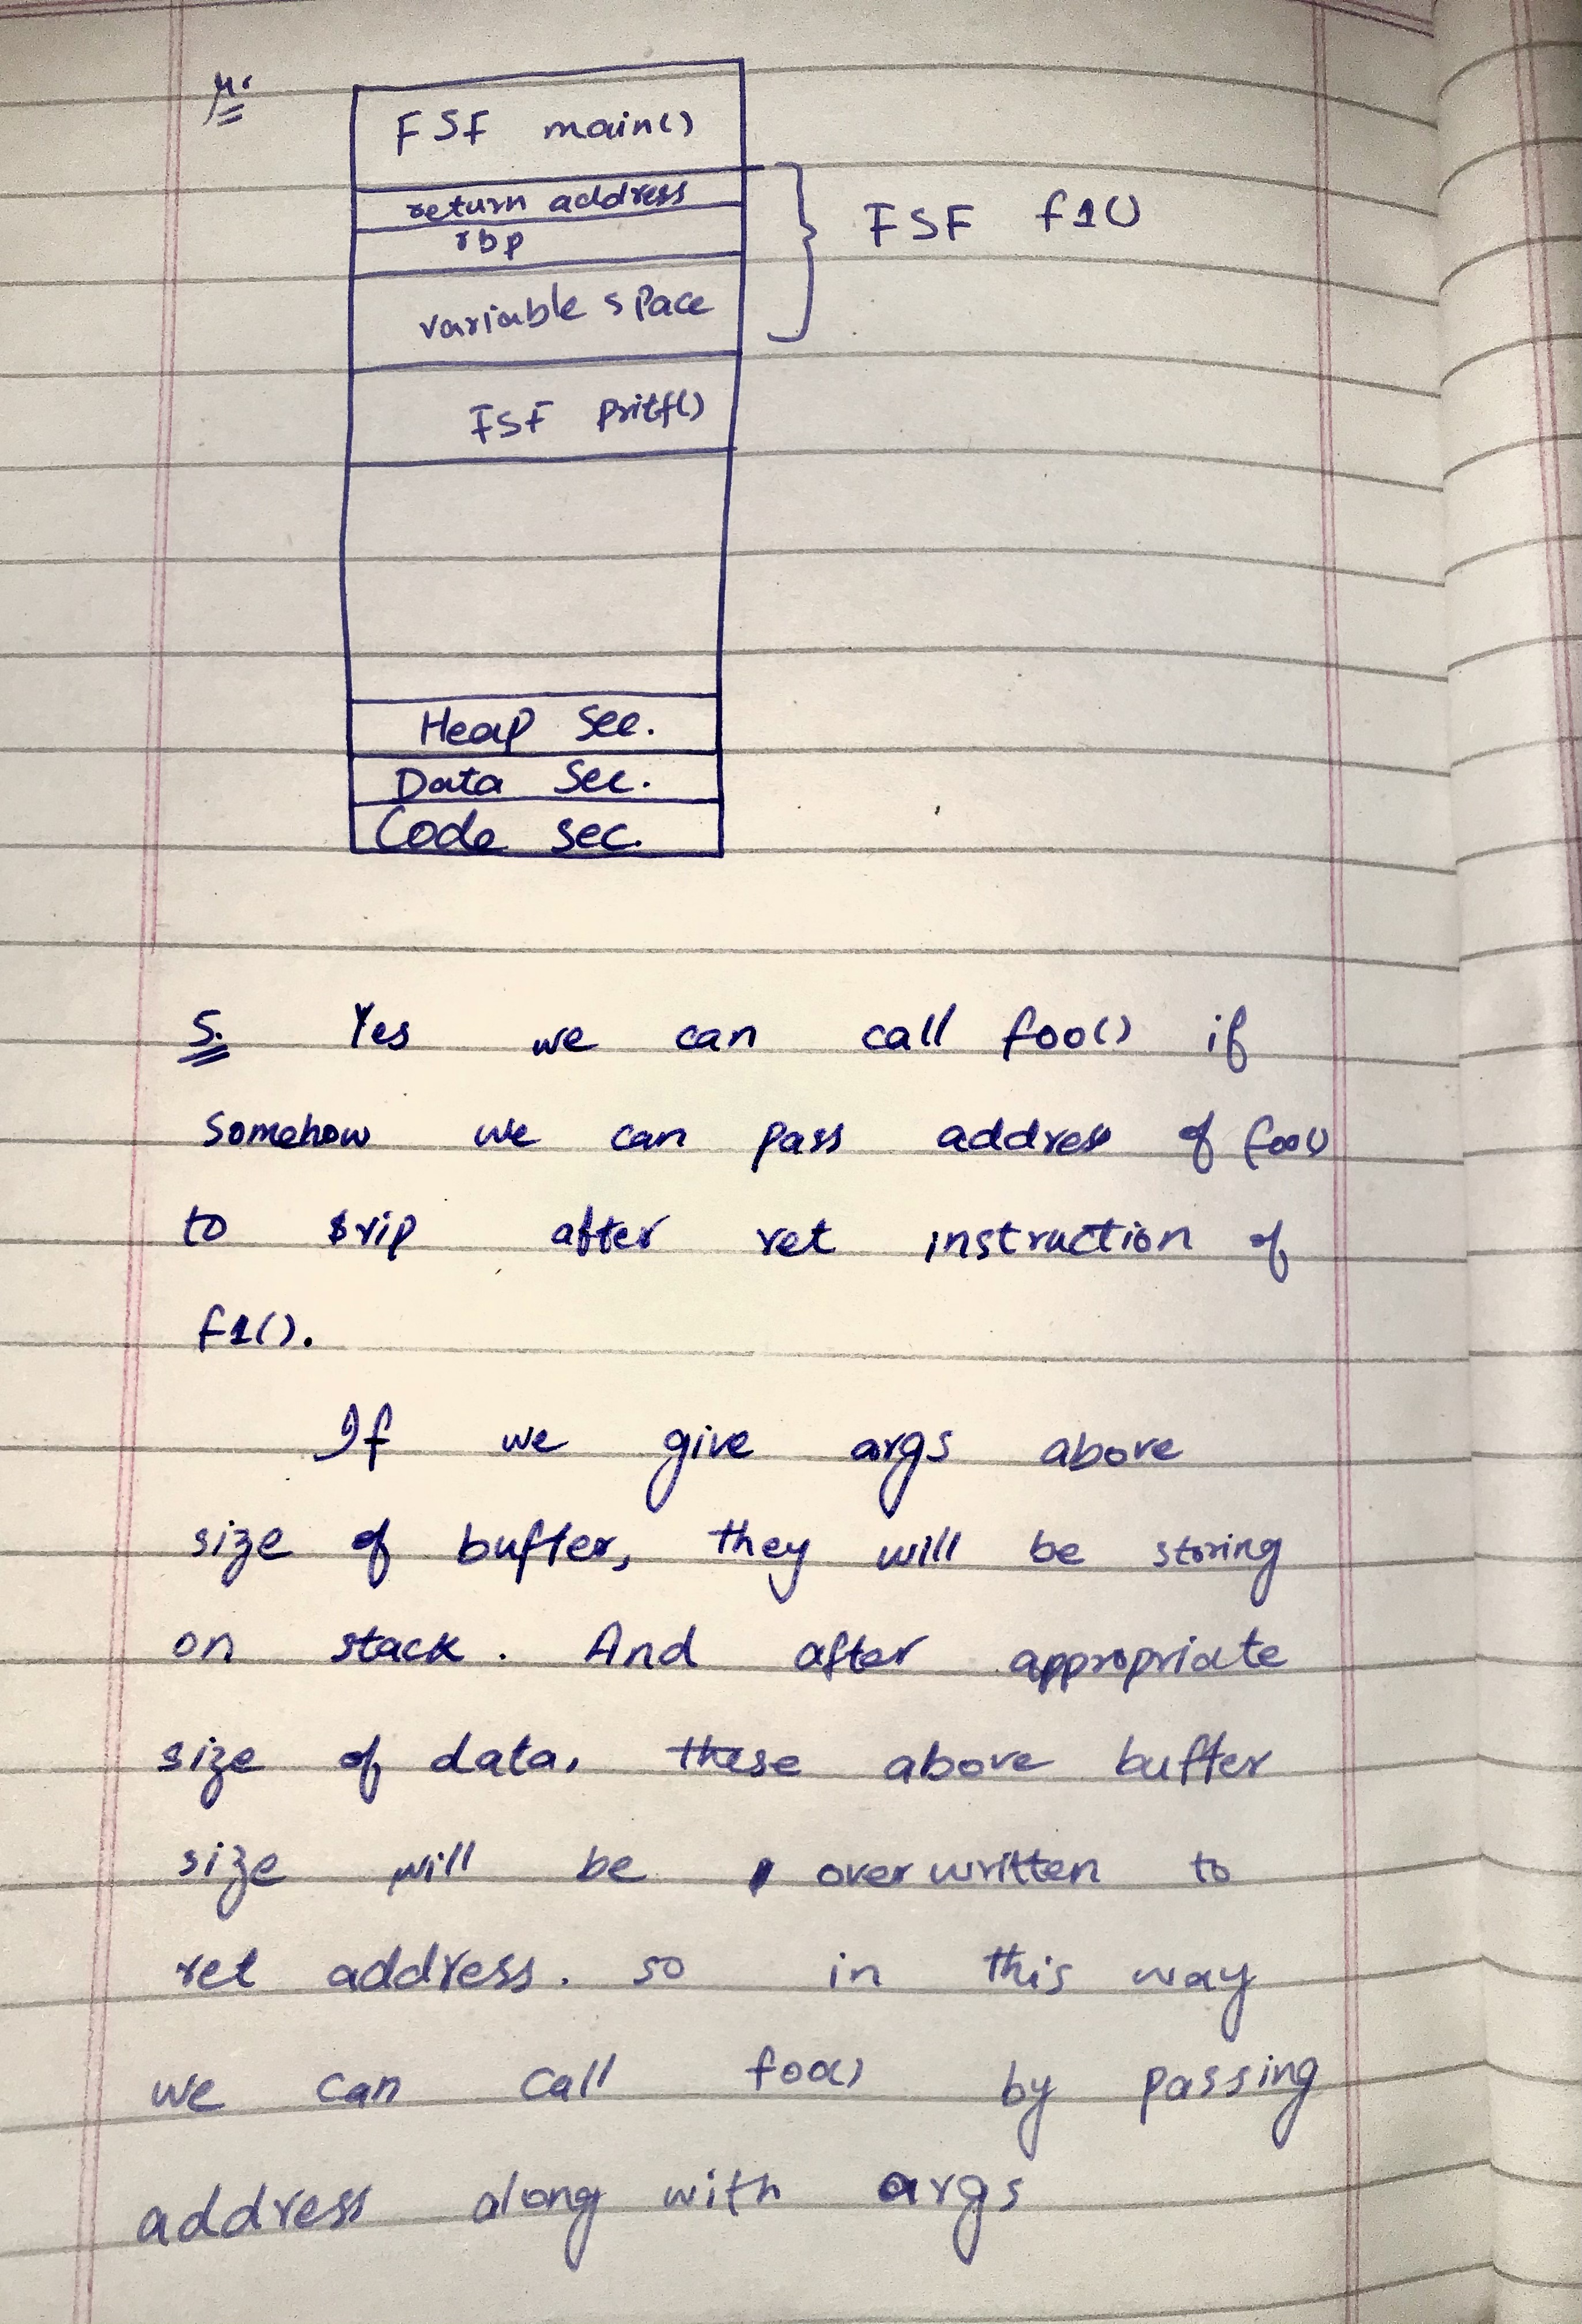 4.
FSF main()
return address
rbp
FSF f1()
variable space
FSF pritf()
Heap Sec.
Data Sec.
Code sec.
5. Yes we can call foo() if
somehow we can pass address of foo()
to $rip after ret instruction of
f1().
If we give args above
size of buffer, they will be storing
on stack. And after appropriate
size of data, these above buffer
size will be over written to
ret address. so in this way
we can call foo() by passing
address along with args